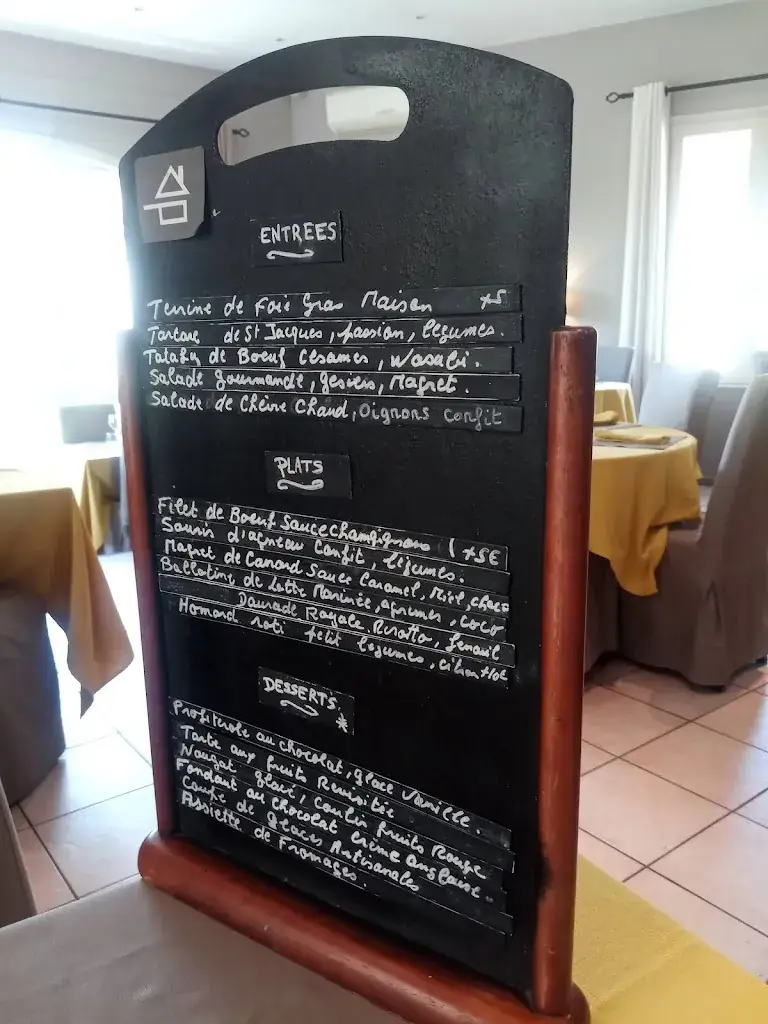 ENTREES
Terrine de Foie Gras Maison +5
Tartare de St Jacques, passion, legumes.
Tataky de Boeuf Césames, Wasabi.
Salade gourmande, gesiers, Magret.
Salade de Chèvre Chaud, Oignons confit
PLATS
Filet de Boeuf Sauce champignons +5E
Souris d'agneau Confit, légumes.
Magret de Canard Sauce Caramel, Miel, choco
Ballotine de Lotte Marinée, agrumes, coco
Daurade Royale, Risotto, fenouil
Homard roti petit legumes,
DESSERTS *
Profiterole au chocolat, glace vanille.
Tarte aux fruits Revisitée
Nougat glacé, coulis fruits Rouge
Fondant au chocolat crème anglaise.
Coupe de glaces Artisanales
Assiette de Fromages.